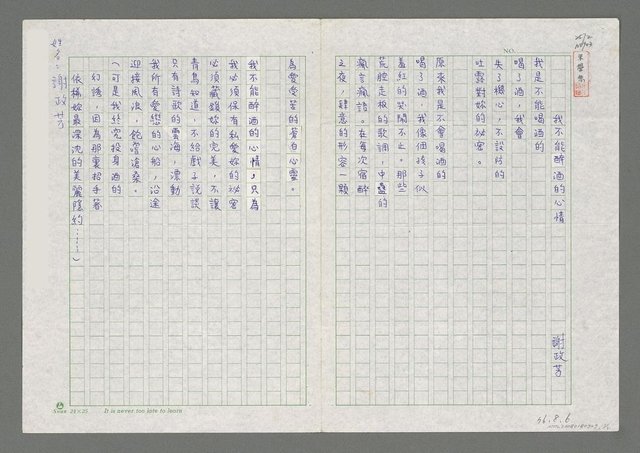 我不能醉酒的心情
謝政芳
我是不能喝酒的
喝了酒，我會
失了機心，不設防的
吐露對妳的祕密。
原來我是不會喝酒的
喝了酒，我像個孩子似
羞紅的笑鬧不止。那些
荒腔走板的歌調，中蠱的
瘋言瘋語。在每次宿醉
之夜，肆意的形容一顆
為愛受苦的蒼白心靈。
我不能醉酒的心情，只為
我必須保有私愛妳的祕密
必須藏鎖妳的完美，不讓
青鳥知道，不給戲子說談
只有詩歌的雲海，漂動
我所有愛戀的心船，沿途
迎接風浪，飽嘗滄桑。
（可是我終究投身酒的
幻影，因為那裏招手著
依稀妳最深沈的美麗隱約……）
姓名：謝政芳
NO.
56.8.6
24×25
It is never too late to learn